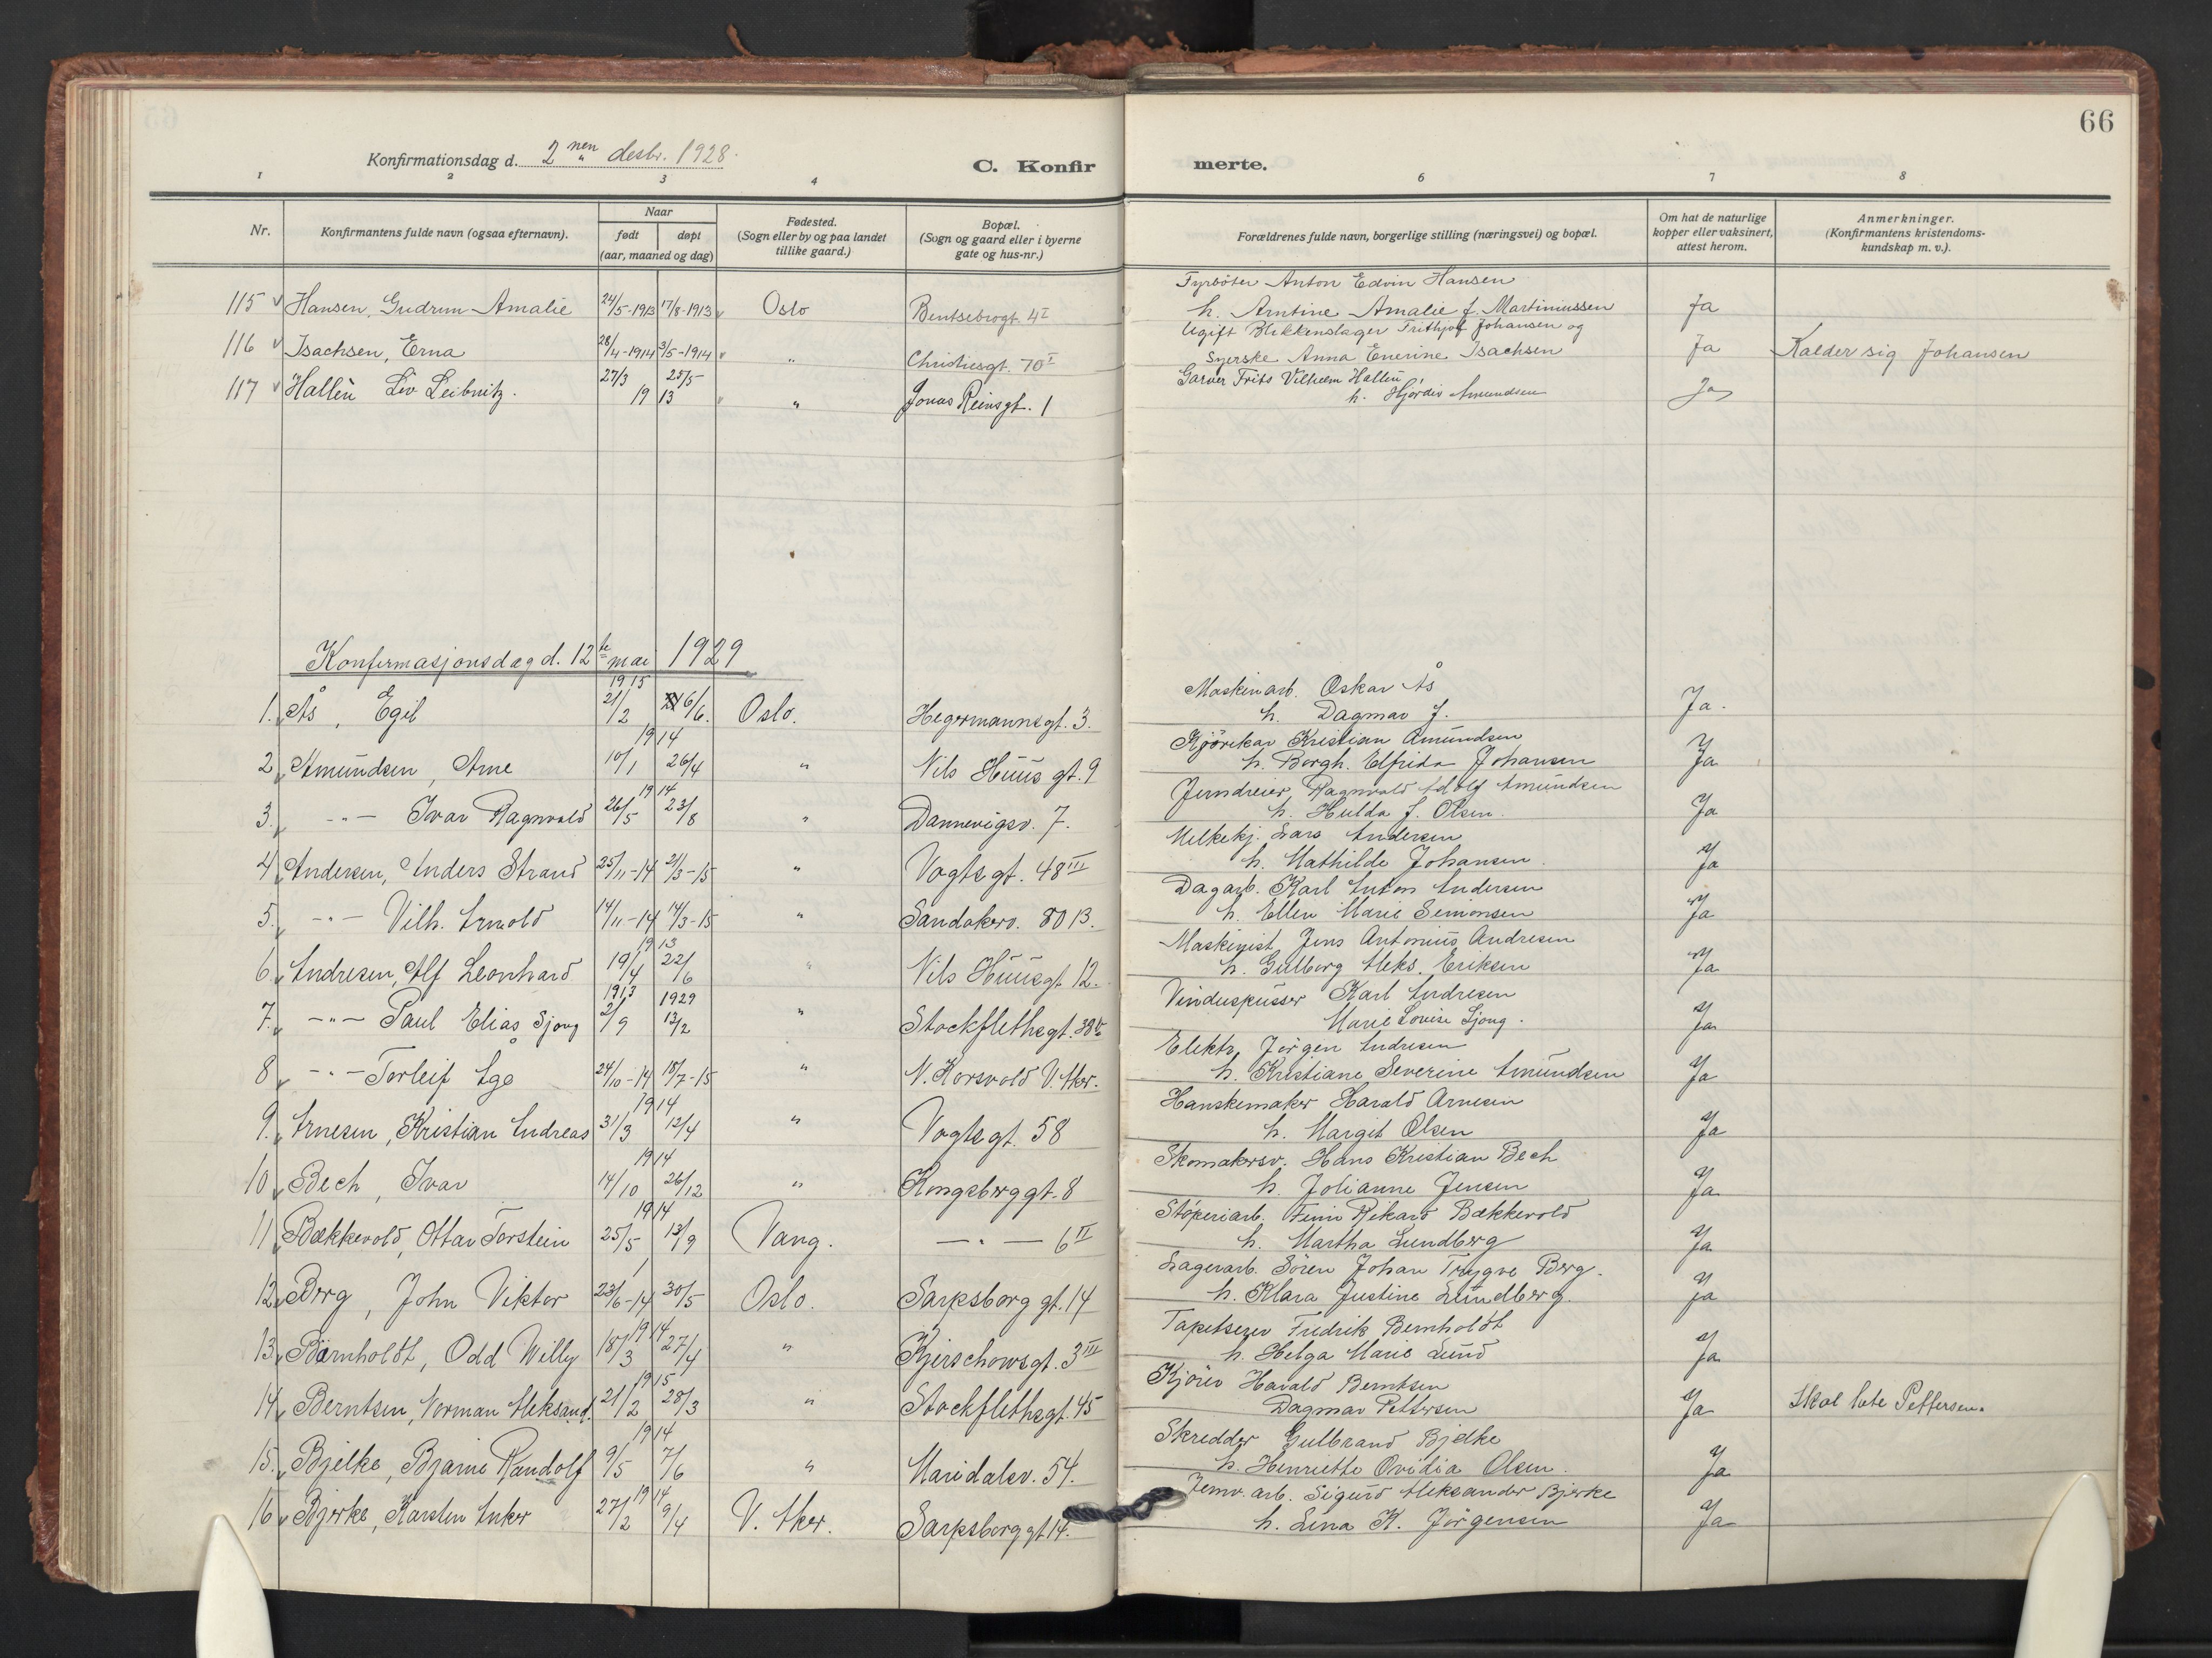 66
Konfirmationsdag d. 2nen desbr. 1928.
C. Konfir merte.
1 2 3 4 6 7 8
Nr.
Konfirmantens fulde navn (ogsaa efternavn).
Naar
født døpt
(aar, maaned og dag)
Fødested.
(Sogn eller by og paa landet
tillike gaard.)
Bopæl.
(Sogn og gaard eller i byerne
gate og hus-nr.)
Forældrenes fulde navn, borgerlige stilling (næringsvei) og bopæl.
Om hat de naturlige
kopper eller vaksinert,
attest herom.
Anmerkninger.
(Konfirmantens kristendoms-
kundskap m. v.).
Fyrbøter Anton Edvin Hansen
115 Hansen, Gudrun Amalie 24/5-1913 17/8-1913 Oslo Bentsebrogt. 4 I h. Arntine Amalie f. Martiniussen Ja
Ugift Blikkenslager Frithjof Johansen og
116 Isachsen, Erna 28/4-1914 3/5-1914 " Christiesgt. 70 I Syerske Anna Enerine Isachsen Ja Kalder sig Johansen
Garver Frits Vilhelm Hallén
117 Hallén Liv Leibnitz. 27/3 25/5 19 13 " Jonas Reinsgt. 1 h. Hjørdis Amundsen Ja
Konfirmasjonsdag d. 12te mai 1929
1915 Maskinarb. Oskar Ås
1. Ås, Egil 21/2 6/6. Oslo. Hegermannsgt. 3. h. Dagmar J. Ja.
1914 Kjørekar Kristian Amundsen
2 Amundsen, Arne 10/1 26/4 " Nils Huus gt. 9 h. Borgh. Elfrida Johansen Ja
1914 Jerndreier Ragnvald Adolf Amundsen
3. -"- Ivar Ragnvald 26/5 23/8 " Dannevigsv. 7. h. Hulda J. Olsen. Ja
Melkekj. Lars Andersen
4 Andersen, Anders Strand 25/11-14 21/3-15 " Vogtsgt. 48 III h. Mathilde Johansen. Ja
Dagarb. Karl Anton Andersen
5. -"- Vilh. Arnold 14/11-14 14/3-15 " Sandakerv. 80 B. h. Ellen Marie Simonsen Ja
1913 Maskinist Jens Antonius Andresen
6 Andresen, Alf Leonhard 19/4 22/6 " Nils Huusgt. 12. h. Gulborg Aleks. Eriksen Ja
1913 1929 Vinduspusser Karl Andresen
7. -"- Paul Elias Sjong 2/9 13/2 " Stockflethsgt. Marie Lovise Sjong. Ja
Elektr. Jørgen Andresen
8 -"- Torleif Åge 24/10-14 18/7-15 " N. Korsvold V. Aker. h. Kristiane Severine Amundsen Ja
1914 Hanskemaker Harald Arnesen
9. Arnesen, Kristian Andreas 31/3 12/4 " Vogtsgt. 58 h. Margit Olsen Ja
1914 Skomakersv. Hans Kristian Bech
10 Bech, Ivar 14/10 26/12 " Kongsberggt. 8 h. Jolianne Jensen Ja
1914 Støperiarb. Finn Rikard Bækkevold
11 Bækkevold, Ottar Torstein 25/5 13/9 Vang. -"- 6 II h. Martha Lundberg Ja
Lagerarb. Sören Johan Trygve Berg.
12 Berg, John Viktor 23/6-14 30/5 Oslo. Sarpsborg gt. 14 h. Klara Justine Lundberg. Ja
1914 Tapetserer Fredrik Bernholdt
13 Bärnholdt, Odd Willy 18/3 27/4 " Kjerschowsgt. 3 III h. Helga Marie Lund Ja
1915 Kjører Harald Berntsen
14 Berntsen, Norman Aleksand. 21/2 28/3 " Stockflethsgt. 45 Dagmar Pettersen Ja Skal hete Pettersen.
1914 Skredder Gulbrand Bjelke
15. Bjelke, Bjarne Randolf 9/5 7/6 " Maridalsv. 54. h. Henriette Ovidia Olsen. Ja
1914 Jernv. arb. Sigurd Aleksander Bjerke
16 Bjerke, Karsten Anker 27/2 9/4 V. Aker. Sarpsborggt. 14. h. Lina K. Jørgensen Ja